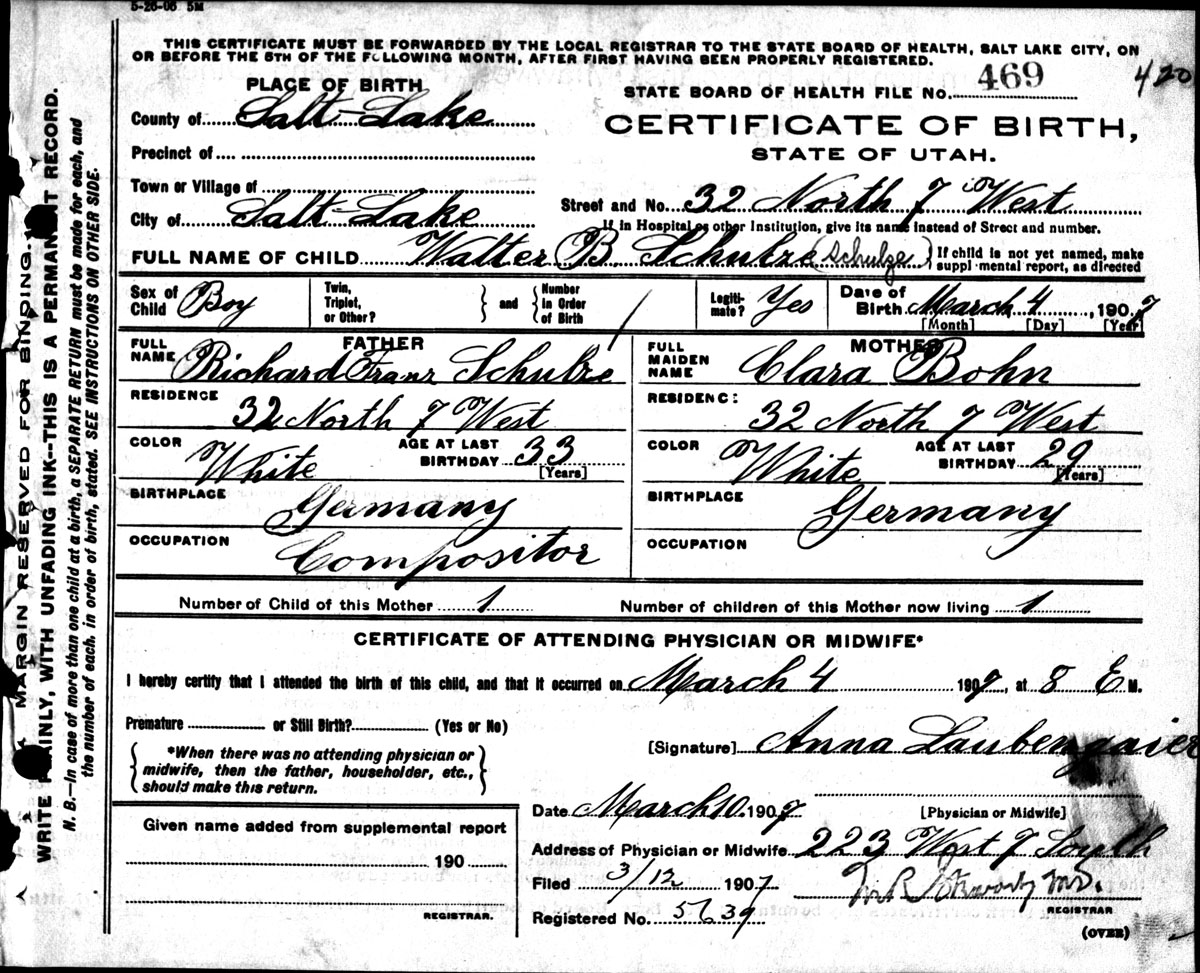 5-26-06 5M
THIS CERTIFICATE MUST BE FORWARDED BY THE LOCAL REGISTRAR TO THE STATE BOARD OF HEALTH, SALT LAKE CITY, ON
OR BEFORE THE 5TH OF THE FOLLOWING MONTH, AFTER FIRST HAVING BEEN PROPERLY REGISTERED.
420
PLACE OF BIRTH
STATE BOARD OF HEALTH FILE No. 469
County of Salt Lake
CERTIFICATE OF BIRTH,
STATE OF UTAH.
Precinct of
Town or Village of
City of Salt Lake
Street and No. 32 North 7 West
If in Hospital or other Institution, give its name instead of Street and number.
FULL NAME OF CHILD Walter B Schulze (Schulze)
If child is not yet named, make
supplemental report, as directed
Sex of Child Boy
Twin, Triplet, or Other?
and
Number in Order of Birth 1
Legitimate? Yes
Date of Birth March 4, 1907
[Month] [Day] [Year]
FATHER
FULL NAME Richard Franz Schulze
RESIDENCE 32 North 7 West
COLOR White
AGE AT LAST BIRTHDAY 33
[Years]
BIRTHPLACE Germany
OCCUPATION Compositor
MOTHER
FULL MAIDEN NAME Clara Bohn
RESIDENC: 32 North 7 West
COLOR White
AGE AT LAST BIRTHDAY 29
[Years]
BIRTHPLACE Germany
OCCUPATION
Number of Child of this Mother 1
Number of children of this Mother now living 1
CERTIFICATE OF ATTENDING PHYSICIAN OR MIDWIFE*
I hereby certify that I attended the birth of this child, and that it occurred on March 4 1907, at 8 E M.
Premature or Still Birth? (Yes or No)
*When there was no attending physician or
midwife, then the father, householder, etc.,
should make this return.
[Signature] Anna Laubengaier
[Physician or Midwife]
Date March 10 1907
Address of Physician or Midwife 223 West 7 South
Filed 3/12 1907
M.D.
REGISTRAR
Registered No. 5639
(OVER)
Given name added from supplemental report
190
REGISTRAR.
MARGIN RESERVED FOR BINDING.
WRITE PLAINLY, WITH UNFADING INK--THIS IS A PERMANENT RECORD.
N. B.—In case of more than one child at a birth, a SEPARATE RETURN must be made for each, and
the number of each, in order of birth, stated. SEE INSTRUCTIONS ON OTHER SIDE.